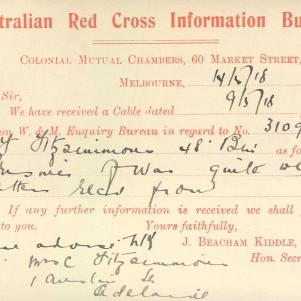 tralian Red Cross Information Bu
Colonial Mutual Chambers, 60 Market Street,
Melbourne, 14/5/18
Sir,
We have received a Cable dated 9/5/18
on W. & M. Enquiry Bureau in regard to No 3109
Fitzsimmons 48' Bn as fo
was quite we
recd from
If any further information is received we shall
Yours faithfully,
advise J. Beacham Kiddle,
Mrs C Fitzsimmons Hon. Secr
1 St
Adelaide